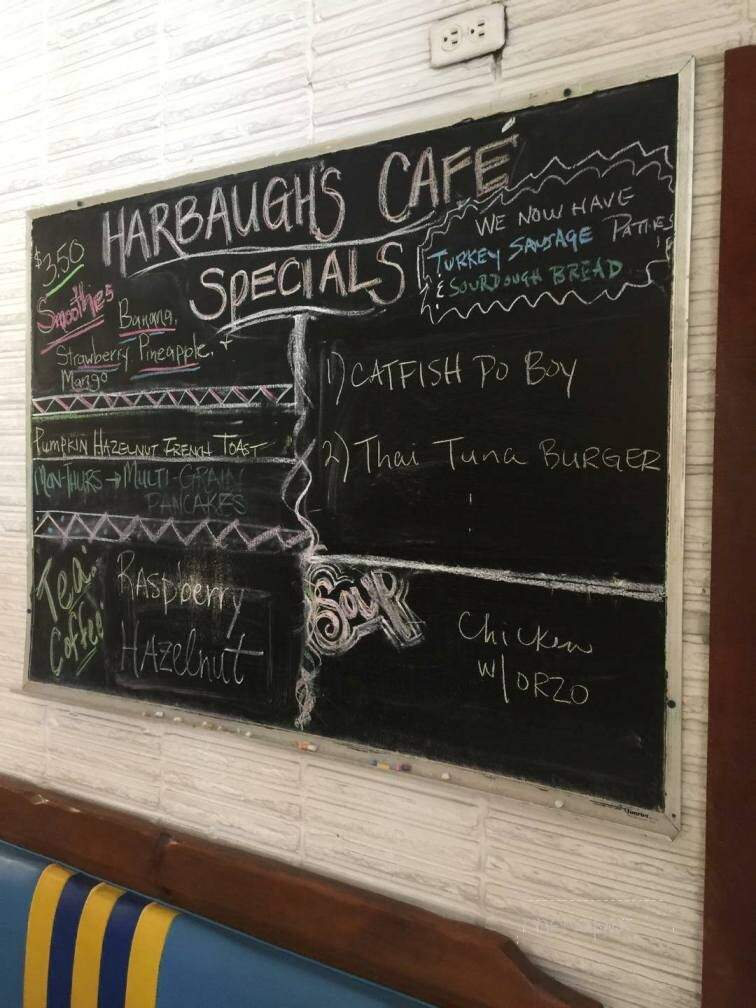 HARBAUGH'S CAFÉ
SPECIALS
WE NOW HAVE
TURKEY SAUSAGE PATTIES
& SOURDOUGH BREAD
$3.50
Smoothies
Banana,
Strawberry Pineapple, +
Mango
PUMPKIN HAZELNUT FRENCH TOAST
MON-THURS → MULTI-GRAIN
PANCAKES
Tea: Raspberry
Coffee: Hazelnut
1) CATFISH PO BOY
2) Thai Tuna BURGER
SOUP
Chicken
W/ ORZO